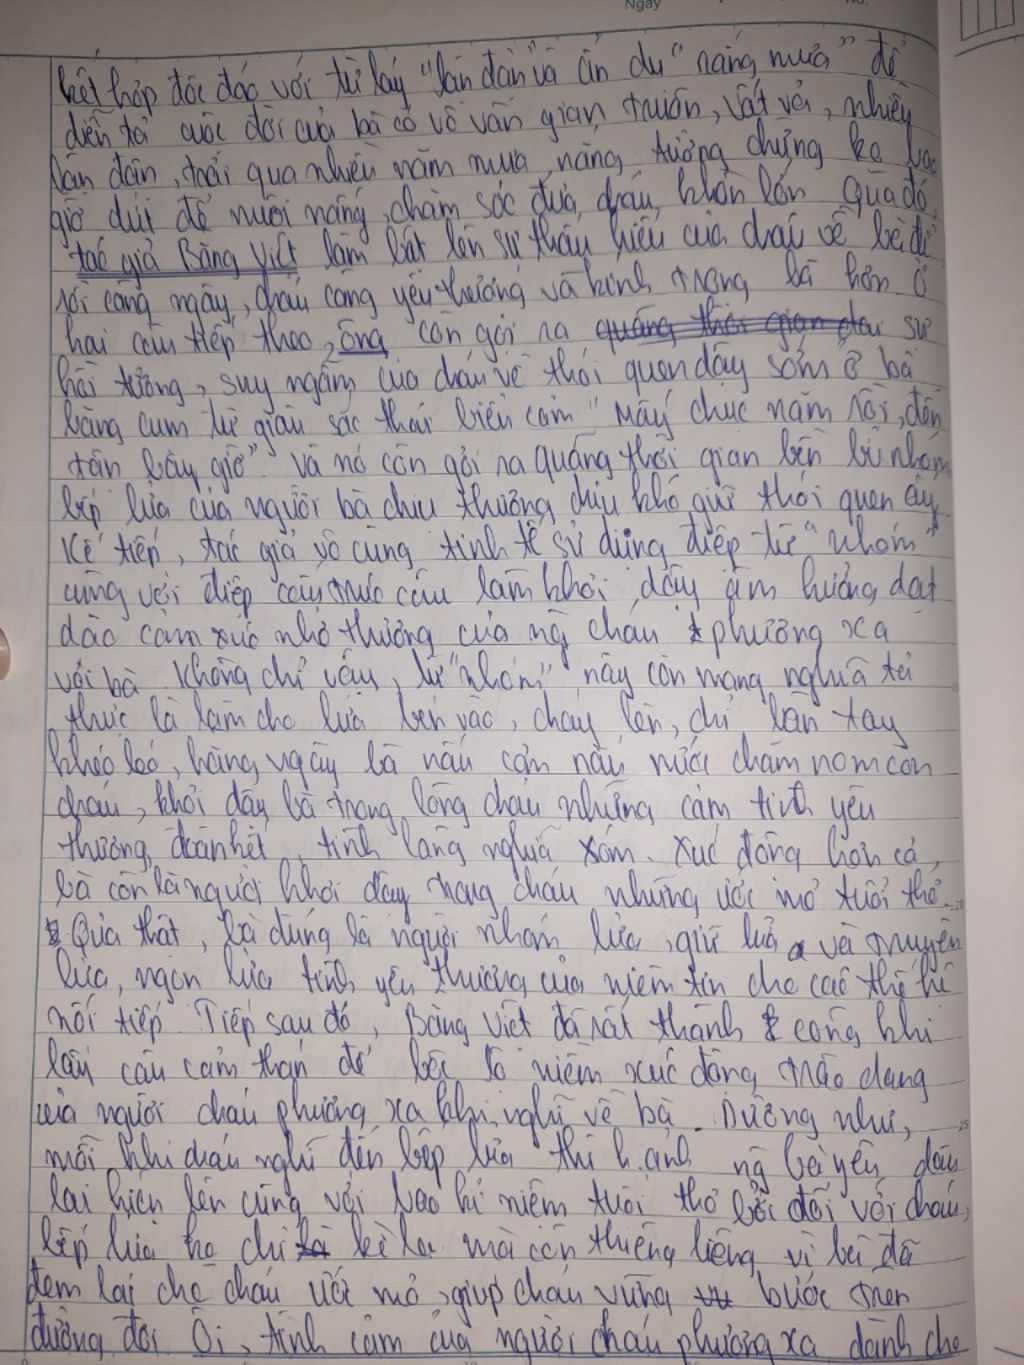 Ngày
kết hợp độc đáo với từ láy "lận đận" và ẩn dụ "nắng mưa" để
diễn tả cuộc đời của bà có vô vàn gian truân, vất vả, nhiều
lận đận, trải qua nhiều năm mưa nắng tưởng chừng ko bao
giờ dứt để nuôi nấng, chăm sóc đứa cháu khôn lớn. Qua đó,
tác giả Bằng Việt làm bật lên sự thấu hiểu của cháu về bà để
rồi càng ngày, cháu càng yêu thương và kính trọng bà hơn. Ở
hai câu tiếp theo, ông còn gợi ra quãng thời gian dài sự
hồi tưởng, suy ngẫm của cháu về thói quen dậy sớm ở bà
bằng cụm từ giàu sắc thái biểu cảm "Mấy chục năm rồi, đến
tận bây giờ". Và nó còn gợi ra quãng thời gian bền bỉ nhóm
bếp lửa của người bà chịu thương chịu khó giữ thói quen ấy.
Kế tiếp, tác giả vô cùng tinh tế sử dụng điệp từ "nhóm"
cùng với điệp cấu trúc câu làm khơi dậy âm hưởng dạt
dào cảm xúc nhớ thương của ng cháu phương xa
với bà. Không chỉ vậy, từ "nhóm" này còn mang nghĩa tả
thực là làm cho lửa bén vào, cháy lên, chỉ bàn tay
khéo léo, hằng ngày bà nấu cơm nấu nước chăm nom con
cháu, khơi dậy bà trong lòng cháu những cảm tình yêu
thương, đoàn kết, tình làng nghĩa xóm. Xúc động hơn cả,
bà còn là người khơi dậy trong cháu những ước mơ tuổi thơ.
Qủa thật, bà đúng là người nhóm lửa, giữ lửa và truyền
lửa, ngọn lửa tình yêu thương của niềm tin cho các thế hệ
nối tiếp. Tiếp sau đó, Bằng Việt đã rất thành công khi
lấy câu cảm thán để bộc lộ niềm xúc động trào dâng
của người cháu phương xa khi nghĩ về bà. Dường như,
mỗi khi cháu nghĩ đến bếp lửa thì h.ảnh ng bà yêu dấu
lại hiện lên cùng với bao kỉ niệm tuổi thơ bởi đối với cháu,
bếp lửa ko chỉ là kì lạ mà còn thiêng liêng vì bà đã
đem lại cho cháu ước mơ, giúp cháu vững bước trên
đường đời. Ôi, tình cảm của người cháu phương xa dành cho